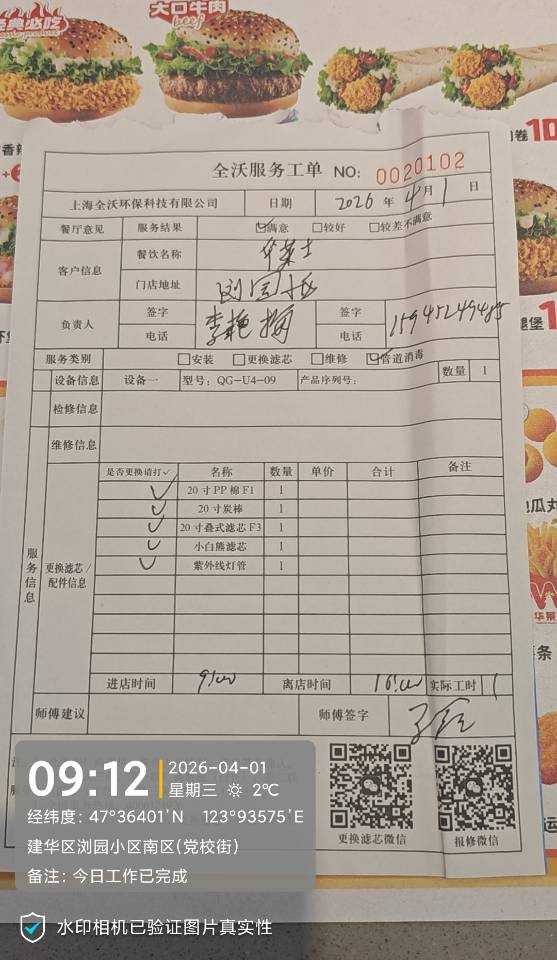 大口牛肉
beef
全沃服务工单 NO: 0020102
上海全沃环保科技有限公司 日期 2026 年 4 月 1 日
餐厅意见 服务结果 满意 较好 较差不满意
客户信息 餐饮名称 华莱士
门店地址 浏园小区
负责人 签字 李艳梅 签字
电话 电话 15945249485
服务类别 安装 更换滤芯 维修 管道消毒
设备信息 设备一 型号: QG-U4-09 产品序列号: 数量 1
检修信息
维修信息
服务信息
更换滤芯/配件信息
是否更换请打✓ 名称 数量 单价 合计 备注
✓ 20寸PP棉F1 1
✓ 20寸炭棒 1
✓ 20寸叠式滤芯F3 1
✓ 小白熊滤芯 1
✓ 紫外线灯管 1
进店时间 9:00 离店时间 10:00 实际工时 1
师傅建议 师傅签字
更换滤芯微信 报修微信
09:12
2026-04-01
星期三 2℃
经纬度: 47°36401'N 123°93575'E
建华区浏园小区南区(党校街)
备注: 今日工作已完成
水印相机已验证图片真实性